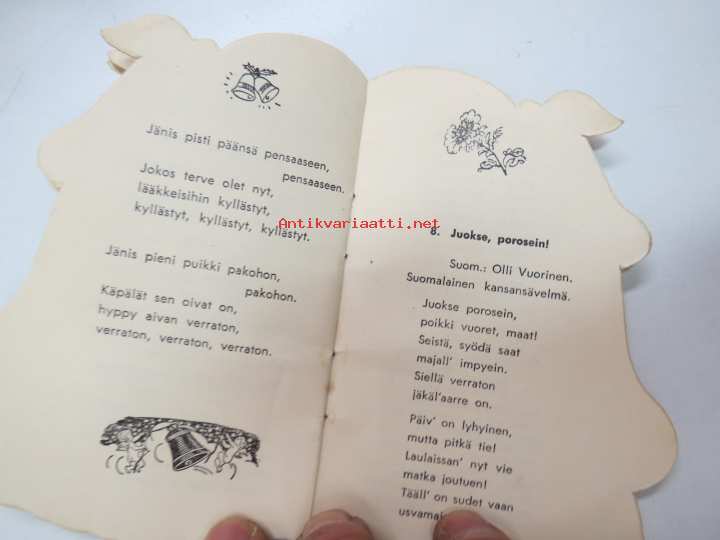 Jänis pisti päänsä pensaaseen,
pensaaseen.
Jokos terve olet nyt,
lääkkeisihin kyllästyt,
kyllästyt, kyllästyt, kyllästyt.
Jänis pieni puikki pakohon,
pakohon.
Käpälät sen oivat on,
hyppy aivan verraton,
verraton, verraton, verraton.
Antikvariaatti.net
8. Juokse, porosein!
Suom.: Olli Vuorinen.
Suomalainen kansansävelmä.
Juokse porosein,
poikki vuoret, maat!
Seistä, syödä saat
majall' impyein.
Siellä verraton
jäkäl'aarre on.
Päiv' on lyhyinen,
mutta pitkä tie!
Laulaissan' nyt vie
matka joutuen!
Tääll' on sudet vaan